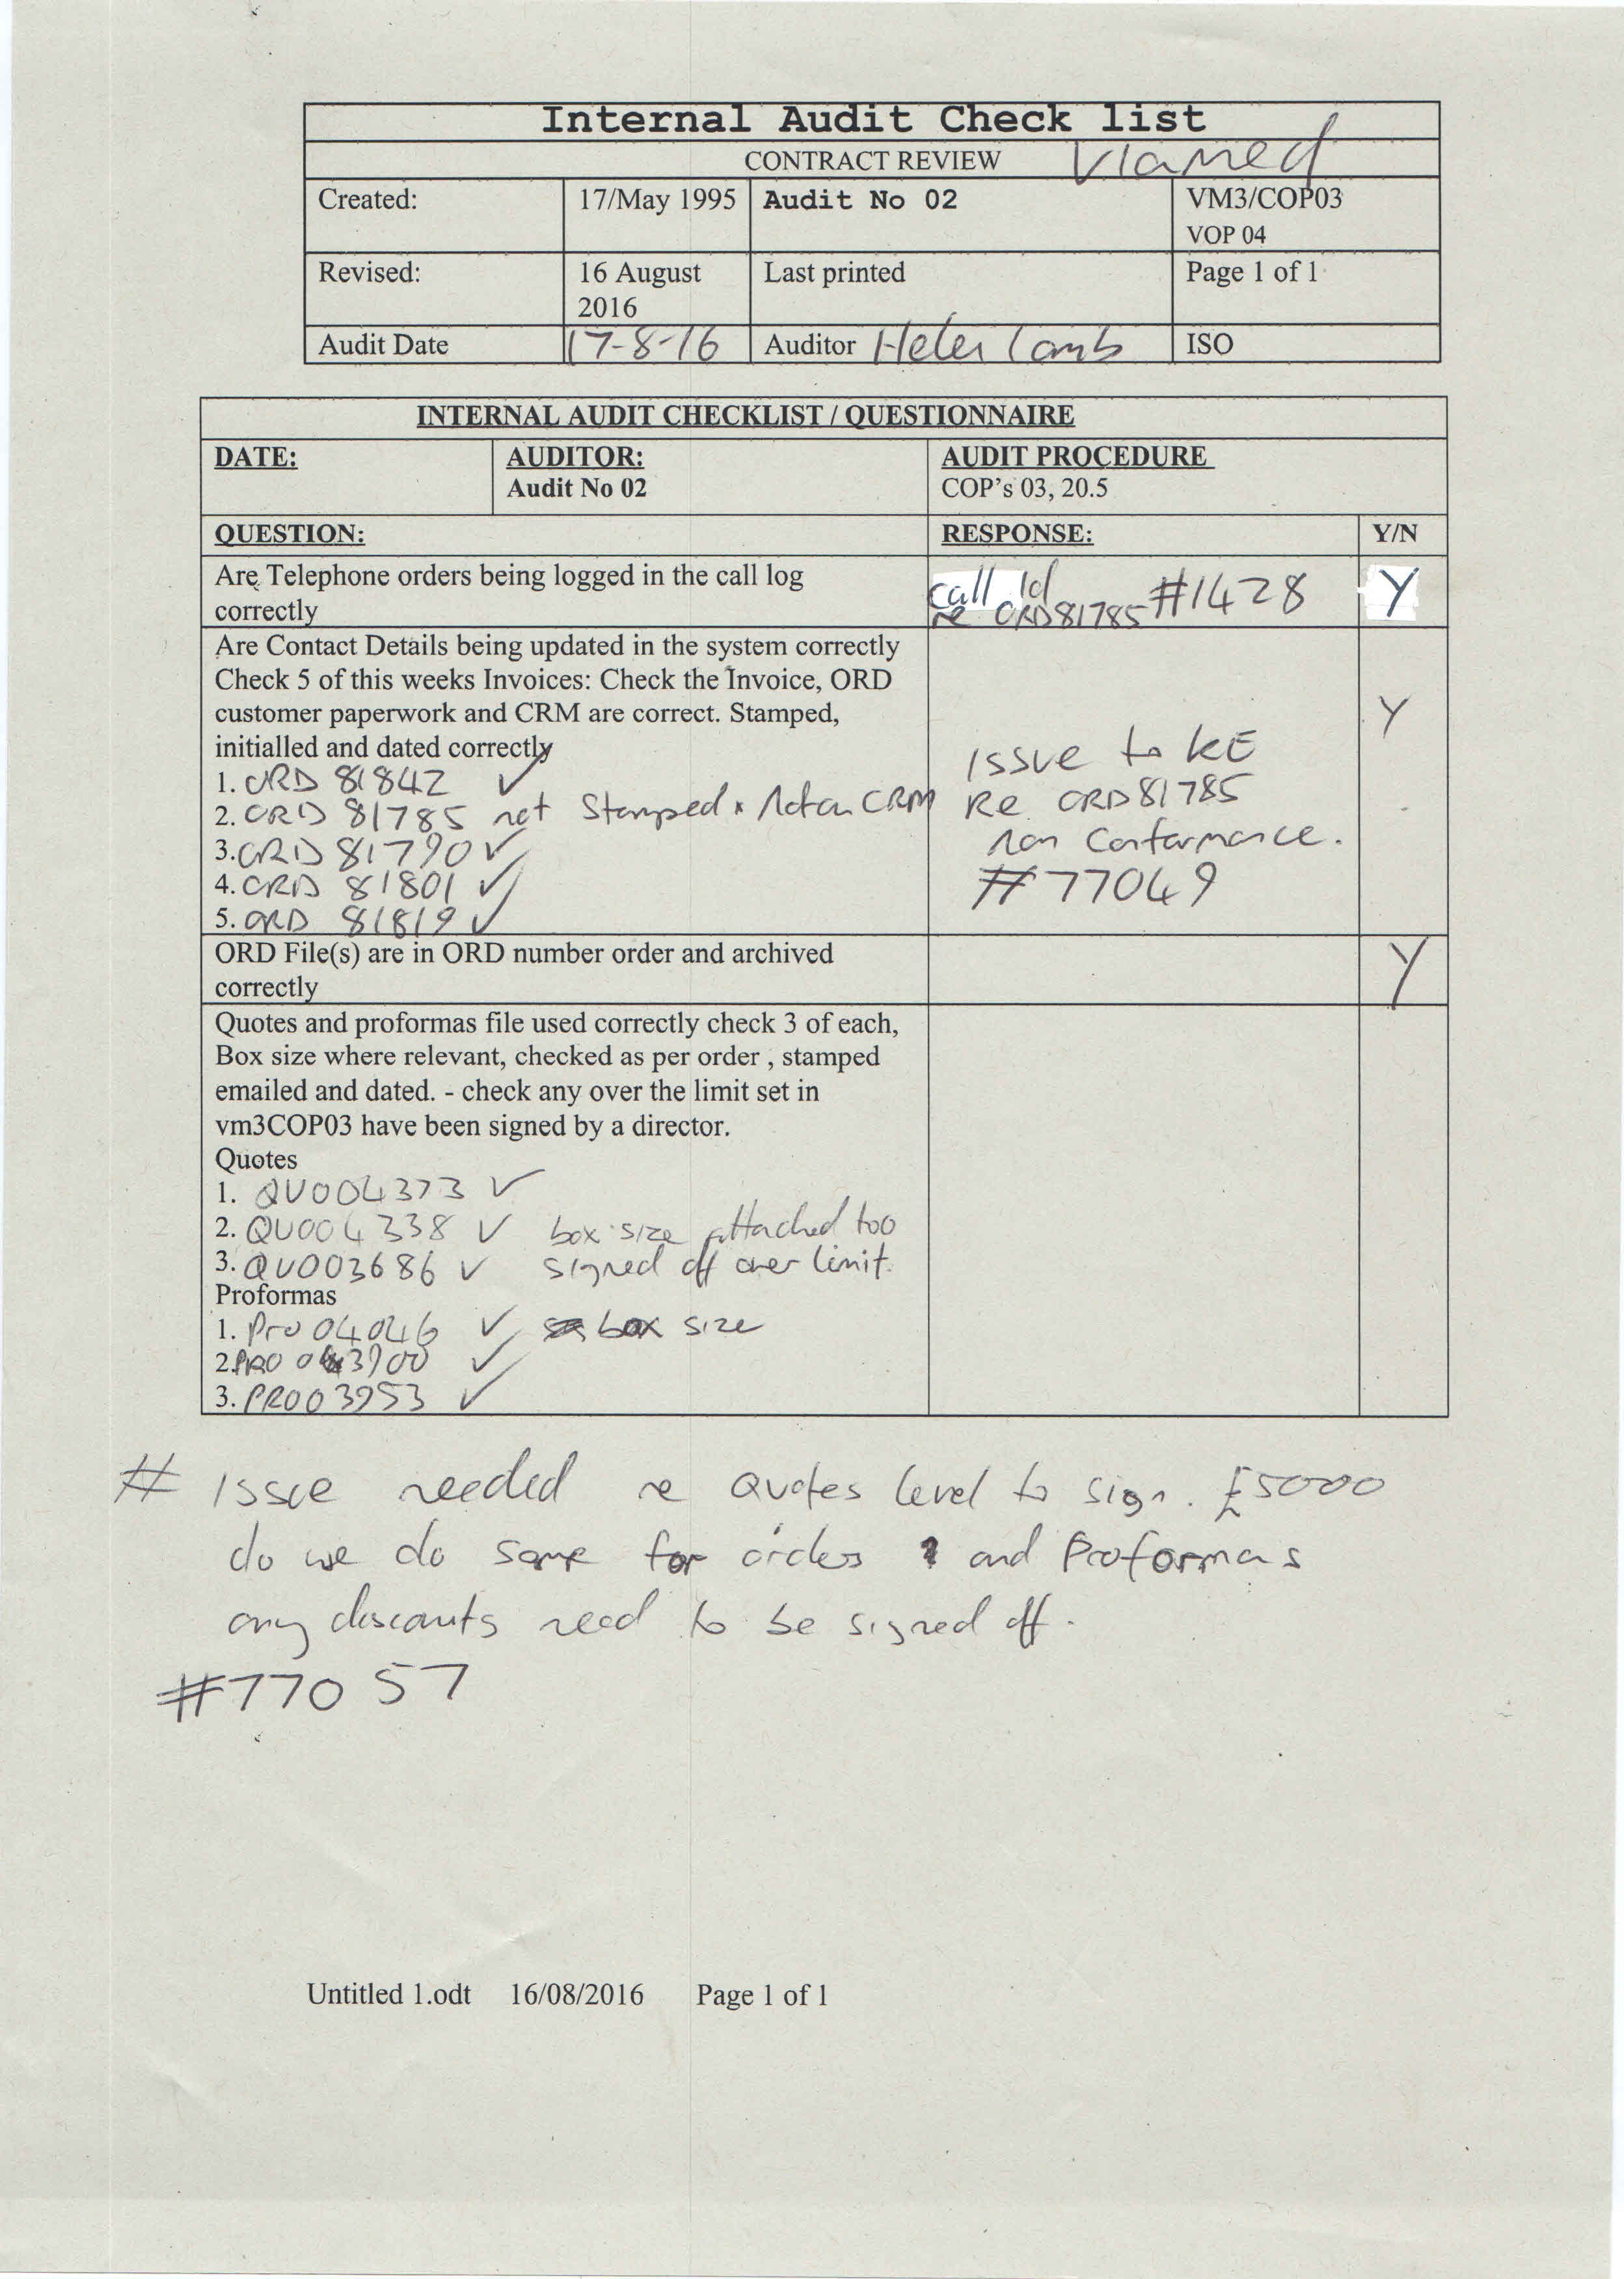 Internal Audit Check list
CONTRACT REVIEW Viamed
Created: 17/May 1995 Audit No 02 VM3/COP03
VOP 04
Revised: 16 August 2016 Last printed Page 1 of 1
Audit Date 17-8-16 Auditor Helen Lamb ISO
INTERNAL AUDIT CHECKLIST / QUESTIONNAIRE
DATE: AUDITOR: AUDIT PROCEDURE
Audit No 02 COP's 03, 20.5
QUESTION: RESPONSE: Y/N
Are Telephone orders being logged in the call log
correctly
call Id
re ORD81785 #1428 Y
Are Contact Details being updated in the system correctly
Check 5 of this weeks Invoices: Check the Invoice, ORD
customer paperwork and CRM are correct. Stamped,
initialled and dated correctly
1. ORD 81842 ✓
2. ORD 81785 not Stamped x Not on CRM
3. ORD 81790 ✓
4. ORD 81801 ✓
5. ORD 81819 ✓
Issue to KE
Re ORD81785
Non Conformance.
#77049
Y
ORD File(s) are in ORD number order and archived
correctly
Y
Quotes and proformas file used correctly check 3 of each,
Box size where relevant, checked as per order , stamped
emailed and dated. - check any over the limit set in
vm3COP03 have been signed by a director.
Quotes
1. QU004373 ✓
2. QU004338 ✓ box size attached too
3. QU003686 ✓ signed off over limit.
Proformas
1. Pro 04046 ✓ box size
2. PRO ✓
3. PRO03953 ✓
# Issue needed re Quotes level to sign. £5000
do we do same for orders ? and Proformas
any discounts need to be signed off.
#77057
Untitled 1.odt 16/08/2016 Page 1 of 1